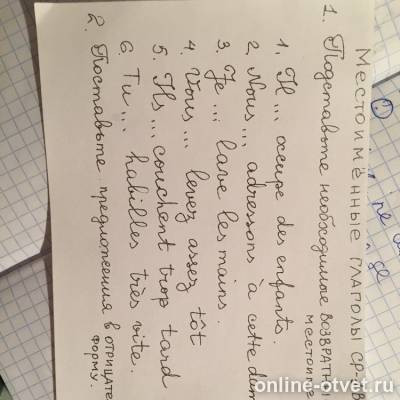 Местоимённые глаголы ср-в
1. Подставьте необходимые возвратны
местоиме
1. Il ... occupe des enfants.
2. Nous ... adressons à cette dam
3. Je ... lave les mains.
4. Vous ... levez assez tôt
5. Ils ... couchent trop tard
6. Tu ... habilles très vite.
2. Поставьте предложения в отрицате
форму.
online-otvet.ru